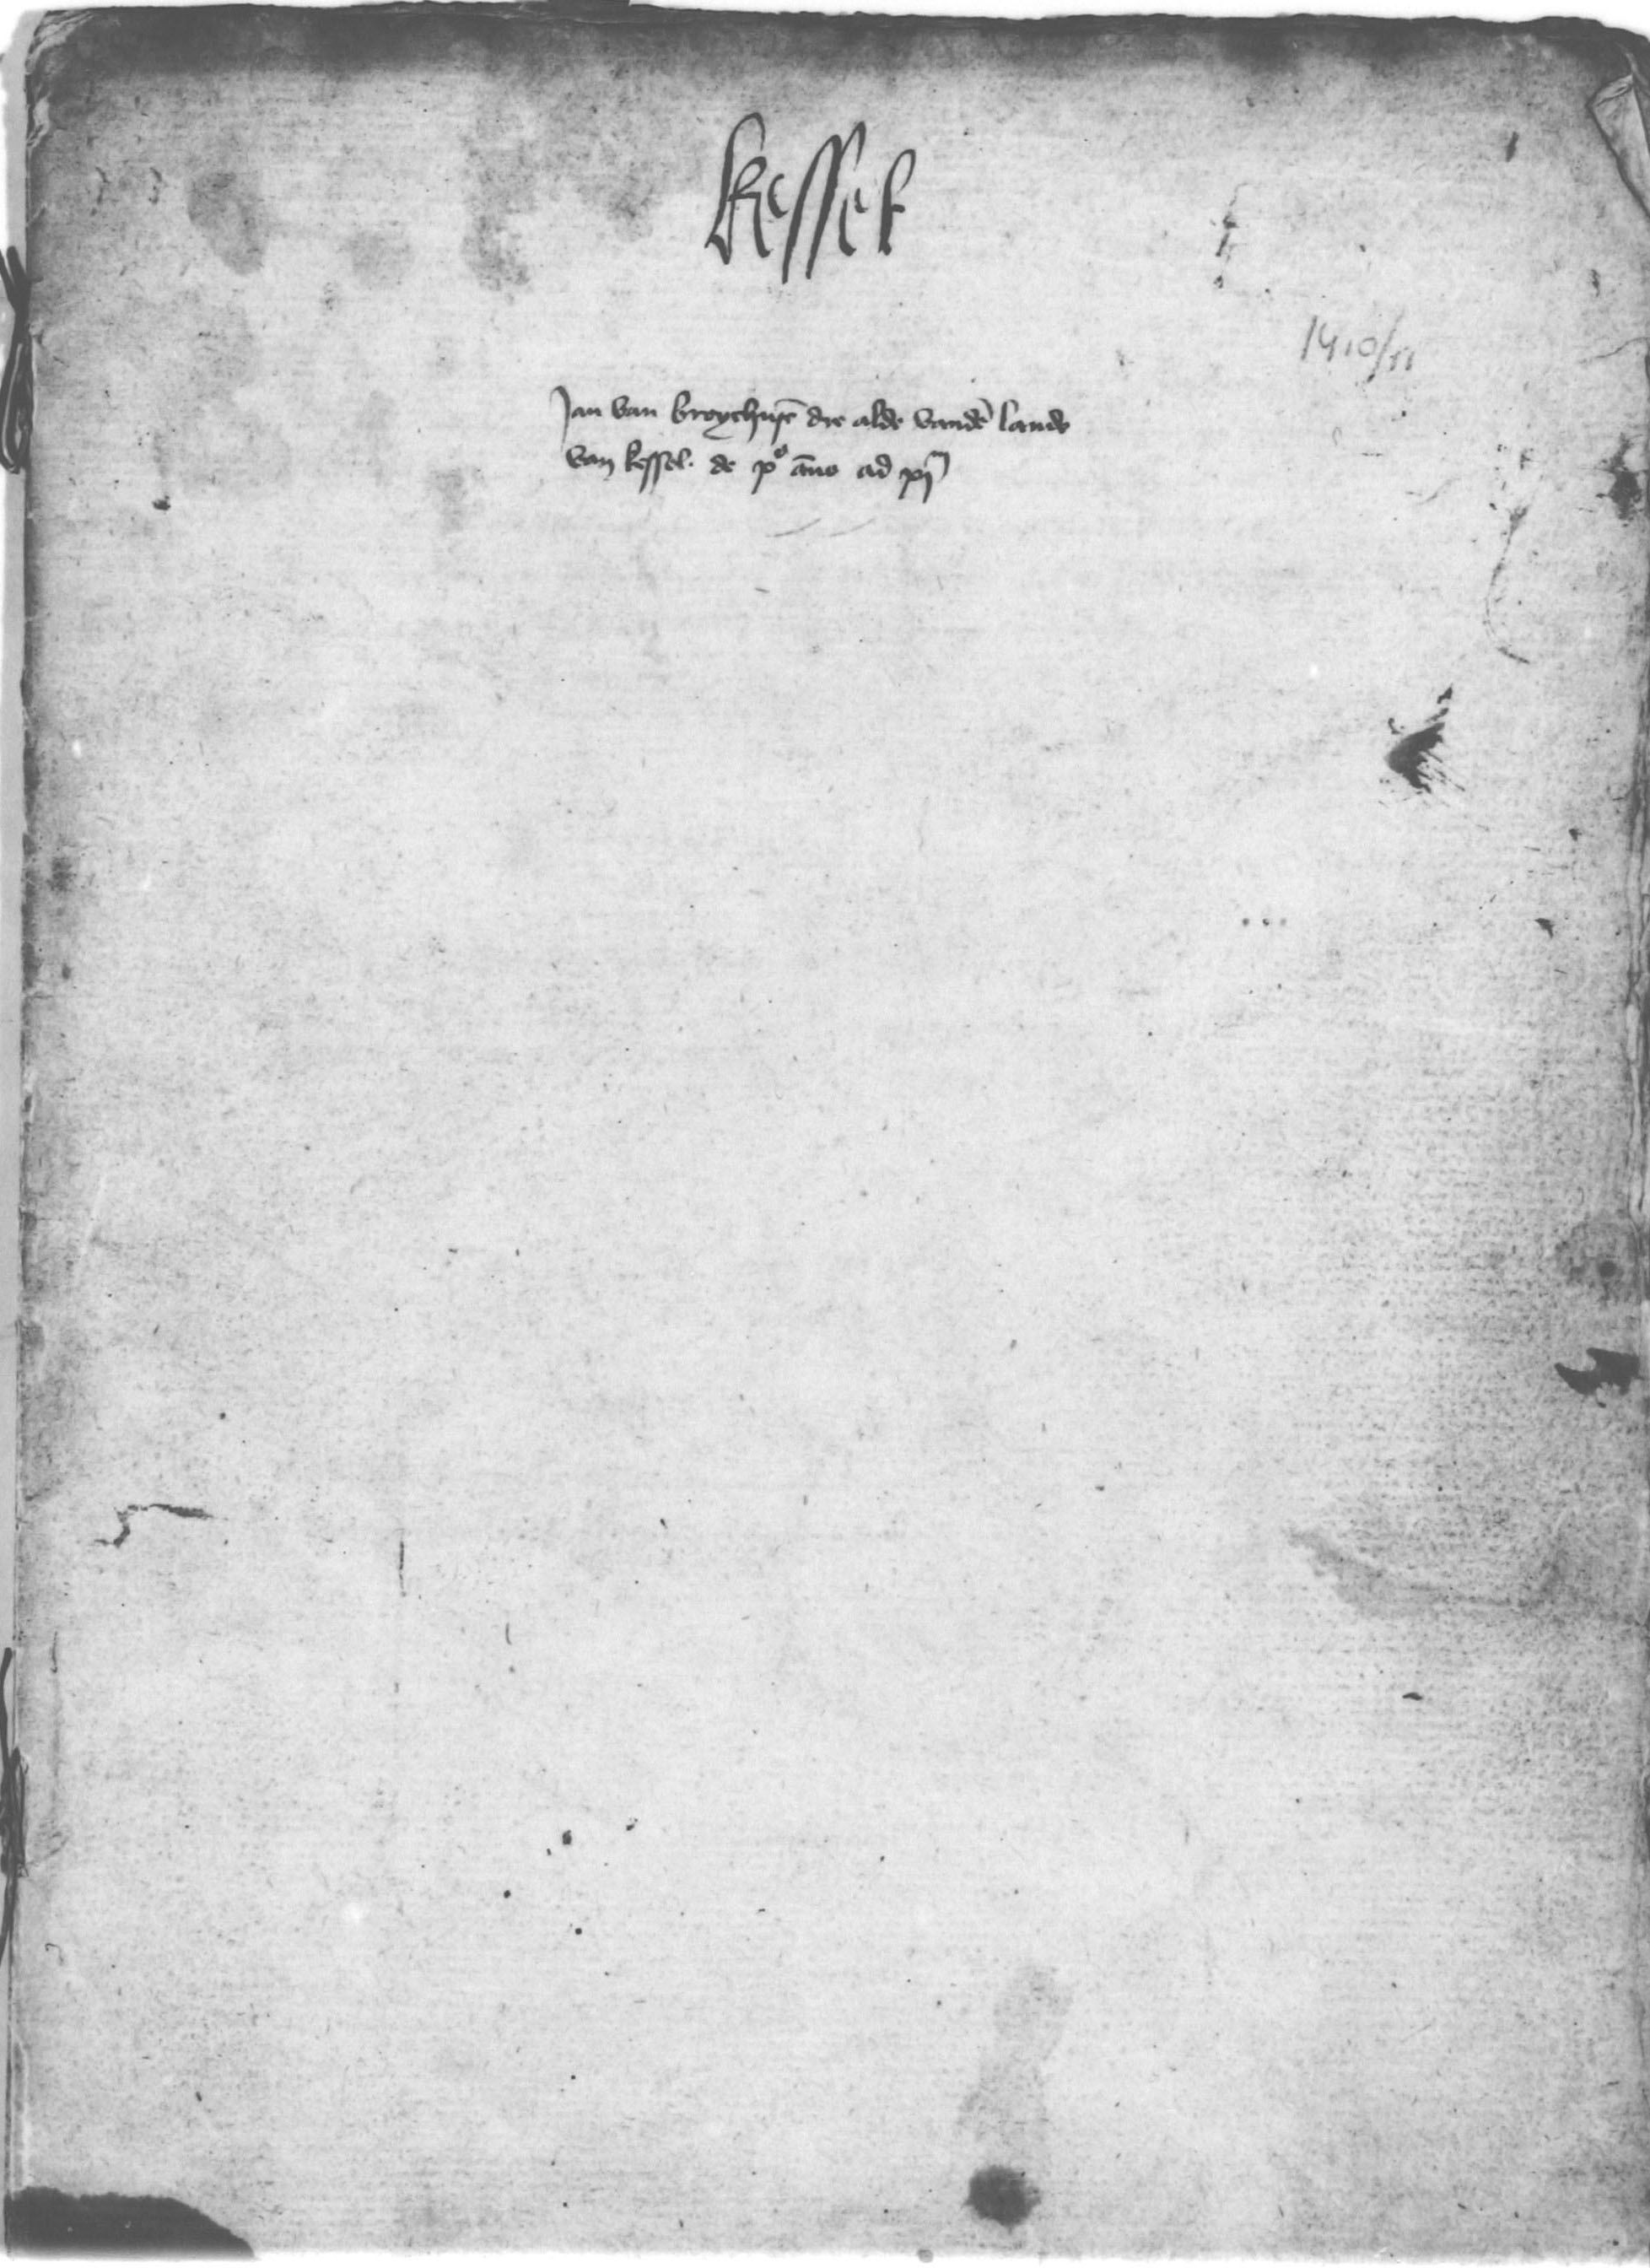 Kessel
1410/11
Jan van broychuse̅ die alde vande̅ lande
van kessel. de xº a̅no ad xj